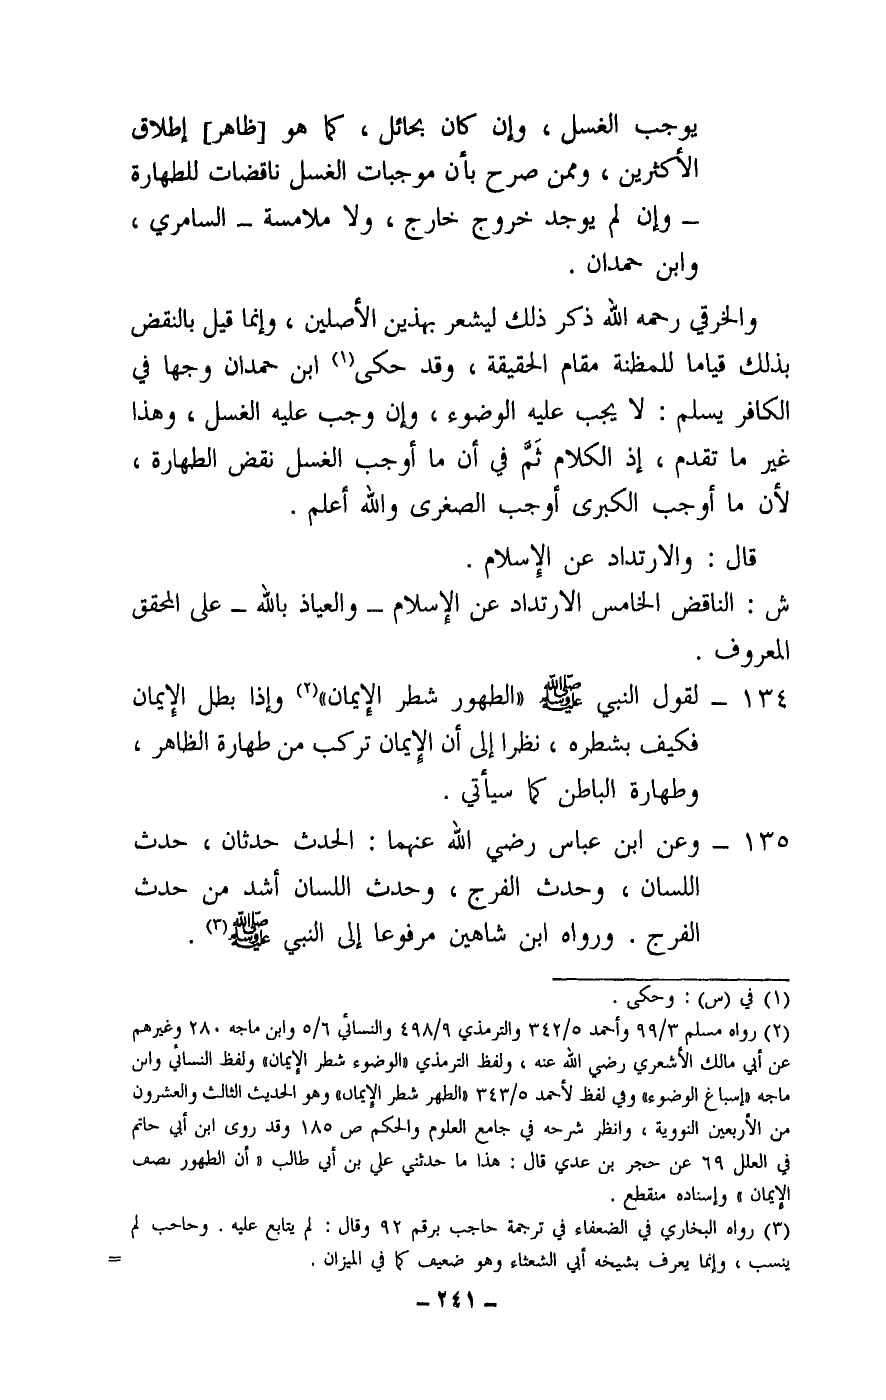 يوجب الغسل ، وإن كان بحائل ، كما هو [ظاهر] إطلاق
الأكثرين ، وممن صرح بأن موجبات الغسل ناقضات للطهارة
– وإن لم يوجد خروج خارج ، ولا ملامسة – السامري ،
وابن حمدان .
والخرقي رحمه الله ذكر ذلك ليشعر بهذين الأصلين ، وإنما قيل بالنقض
بذلك قياما للمظنة مقام الحقيقة ، وقد حكى(١) ابن حمدان وجها في
الكافر يسلم : لا يجب عليه الوضوء ، وإن وجب عليه الغسل ، وهذا
غير ما تقدم ، إذ الكلام ثَمَّ في أن ما أوجب الغسل نقض الطهارة ،
لأن ما أوجب الكبرى أوجب الصغرى والله أعلم .
قال : والارتداد عن الإسلام .
ش : الناقض الخامس الارتداد عن الإسلام – والعياذ بالله – على المحقق
المعروف .
١٣٤ – لقول النبي ﷺ «الطهور شطر الإيمان»(٢) وإذا بطل الإيمان
فكيف بشطره ، نظرا إلى أن الإيمان تركب من طهارة الظاهر ،
وطهارة الباطن كما سيأتي .
١٣٥ – وعن ابن عباس رضي الله عنهما : الحدث حدثان ، حدث
اللسان ، وحدث الفرج ، وحدث اللسان أشد من حدث
الفرج . ورواه ابن شاهين مرفوعا إلى النبي ﷺ(٣) .
(١) في (س) : وحكى .
(٢) رواه مسلم ٩٩/٣ وأحمد ٣٤٢/٥ والترمذي ٤٩٨/٩ والنسائي ٥/٦ وابن ماجه ٢٨٠ وغيرهم
عن أبي مالك الأشعري رضي الله عنه ، ولفظ الترمذي «الوضوء شطر الإيمان» ولفظ النسائي وابن
ماجه «إسباغ الوضوء» وفي لفظ لأحمد ٣٤٣/٥ «الطهر شطر الإيمان» وهو الحديث الثالث والعشرون
من الأربعين النووية ، وانظر شرحه في جامع العلوم والحكم ص ١٨٥ وقد روى ابن أبي حاتم
في العلل ٦٩ عن حجر بن عدي قال : هذا ما حدثني علي بن أبي طالب « أن الطهور نصف
الإيمان » وإسناده منقطع .
(٣) رواه البخاري في الضعفاء في ترجمة حاجب برقم ٩٢ وقال : لم يتابع عليه . وحاجب لم
ينسب ، وإنما يعرف بشيخه أبي الشعثاء وهو ضعيف كما في الميزان . =
– ٢٤١ –